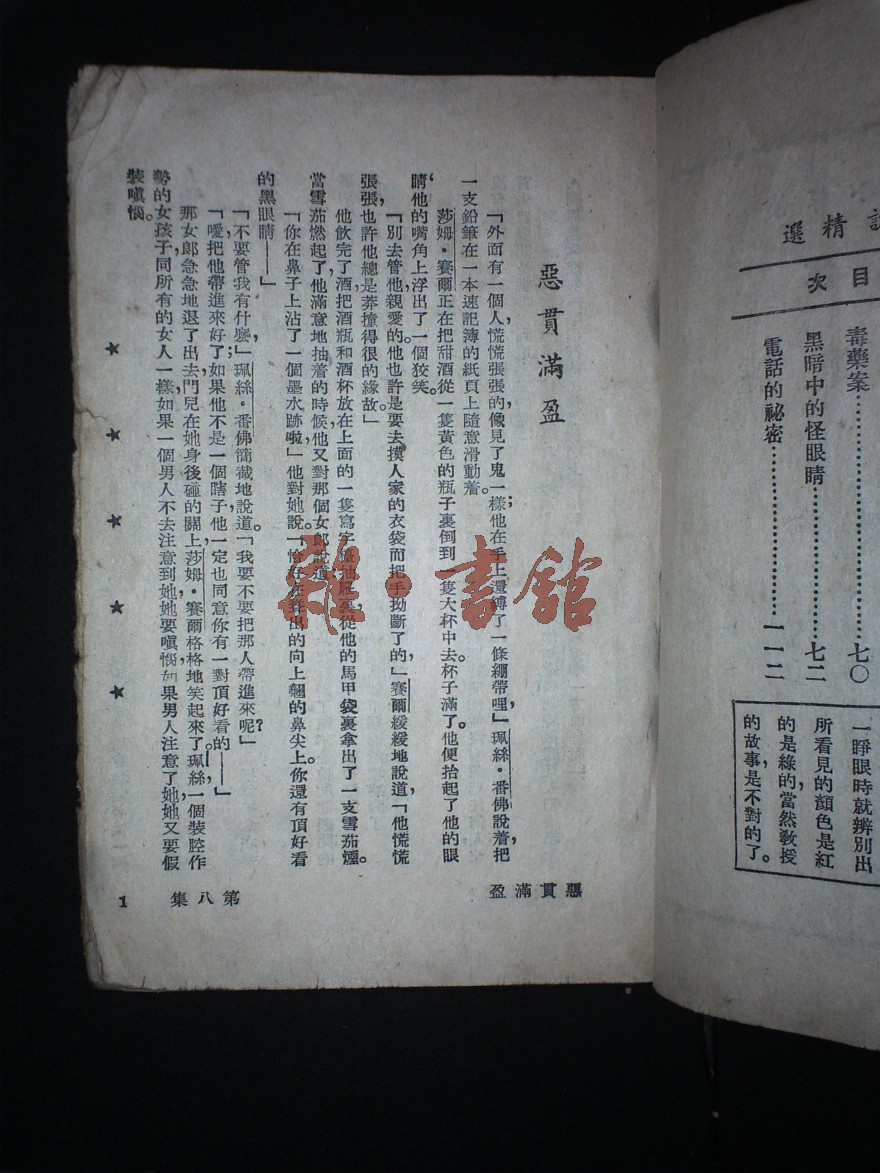 精選
目次
毒藥案……………………七〇
黑暗中的怪眼睛……………七二
電話的祕密…………………一一二
一睜眼時就辨別出
所看見的顏色是紅
的是綠的，當然教授
的故事是不對的了。
惡貫滿盈
「外面有一個人，慌慌張張的像見了鬼一樣；他在手上還縛了一條繃帶哩，」珮絲·番佛說着，把
一支鉛筆在一本速記簿的紙頁上隨意滑動着。
莎姆·賽爾正在把甜酒從一隻黃色的瓶子裏倒到一隻大杯中去。杯子滿了。他便抬起了他的眼
睛，他的嘴角上浮出了一個狡笑。
「別去管他，親愛的。他也許是要去摸人家的衣袋而把手拗斷了的，」賽爾緩緩地說道，「他慌慌
張張，也許他總是莽撞得很的緣故。」
他飲完了酒，把酒瓶和酒杯放在上面的一隻寫字檯抽屜裏，從他的馬甲袋裏拿出了一支雪茄煙。
當雪茄燃起了，他滿意地抽着的時候，他又對那個女郎說道。
「你在鼻子上沾了一個墨水跡啦，」他對她說。「恰好在莽出的向上翹的鼻尖上。你還有頂好看
的黑眼睛——」
「不要管我有什麼，」珮絲·番佛簡截地說道。「我要不要把那人帶進來呢？」
「噯，把他帶進來好了；如果他不是一個瞎子，他一定也同意你有一對頂好看的——」
那女郎急急地退了出去，門兒在她身後碰的關上，莎姆·賽爾格格地笑起來了。珮絲，一個裝腔作
勢的女孩子，同所有的女人一樣，如果一個男人不去注意到她，她要嗔惱，如果男人注意了她，她又要假
裝嗔惱。
★ ★ ★ ★ ★
惡貫滿盈
第八集
1
雜·書館